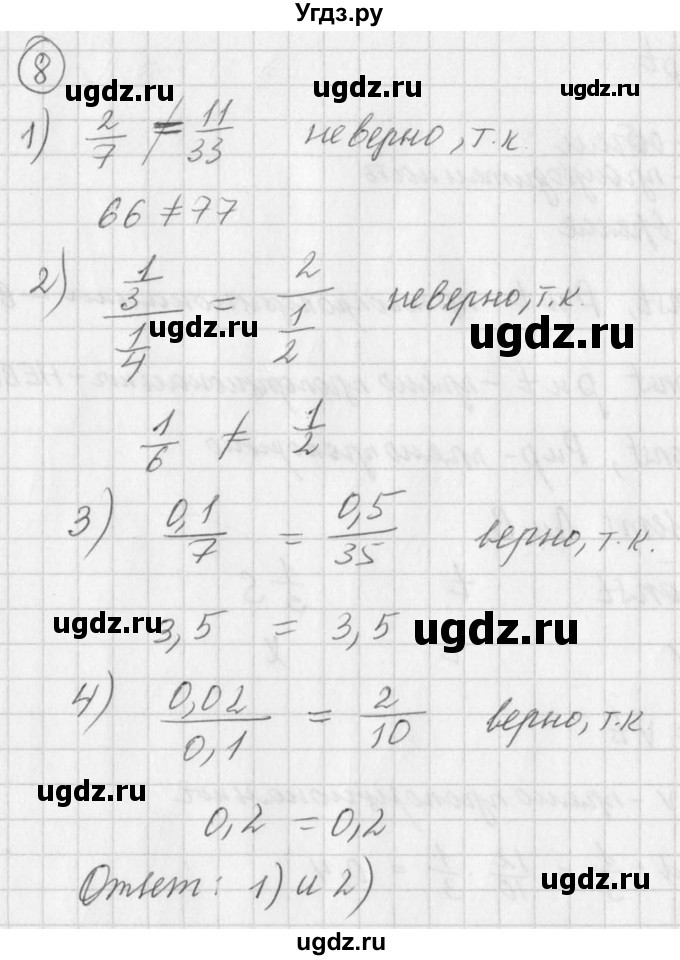 Угдз.ру
8
ugdz.ru ugdz.ru
1) 2/7 ≠ 11/33 неверно, т.к.
66 ≠ 77
2) (1/3)/(1/4) = 2/(1/2) неверно, т.к.
ugdz.ru ugdz.ru
1/6 ≠ 1/2
3) 0,1/7 = 0,5/35 верно, т.к.
ugdz.ru ugdz.ru
3,5 = 3,5
4) 0,02/0,1 = 2/10 верно, т.к
ugdz.ru
0,2 = 0,2
Ответ: 1) и 2)
ugdz.ru
ugdz.ru